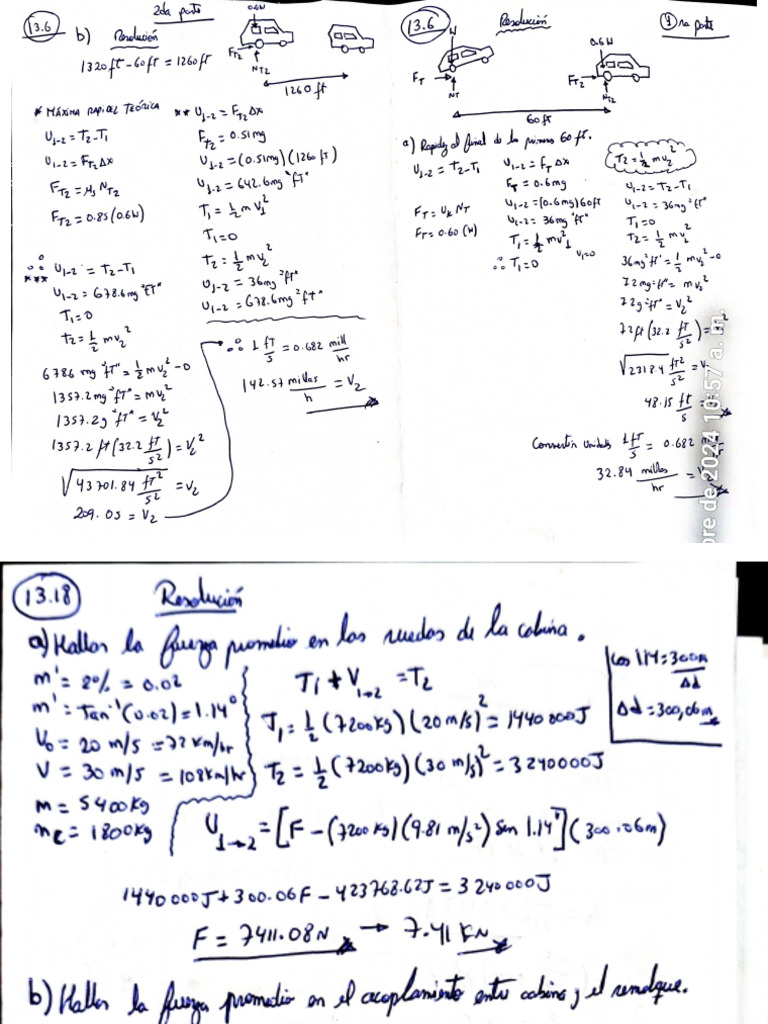 13.6
2da parte
b) Resolución
0.6W
F_T2
N_T2
1320ft - 60ft = 1260ft
1260 ft
* MÁXIMA RAPIDEZ TEÓRICA
U1-2 = T2-T1
U1-2 = F_T2 Δx
F_T2 = μs N_T2
F_T2 = 0.85 (0.6W)
** U1-2 = F_T2 Δx
F_T2 = 0.51mg
U1-2 = (0.51mg)(1260ft)
U1-2 = 642.6mg "ft"
T1 = 1/2 m V1²
T1=0
T2 = 1/2 m v2²
U1-2 = 36mg "fT"
U1-2 = 678.6mg "ft"
∴ *** U1-2 = T2-T1
U1-2 = 678.6mg "fT"
T1 = 0
T2 = 1/2 m v2²
678.6 mg "fT" = 1/2 m v2² - 0
1357.2mg "fT" = m v2²
1357.2g "fT" = v2²
1357.2 ft (32.2 fT/s²) = v2²
√43701.84 fT²/s² = v2
209.05 = v2
∴ 1 fT/s = 0.682 mill/hr
142.57 millas/h = v2
13.6
Resolución
1ra parte
W
F_T
N_T
0.6W
F_T2
N_T2
60ft
a) Rapidez al final de los primeros 60 fT.
U1-2 = T2-T1
F_T = μk N_T
F_T = 0.60 (W)
U1-2 = F_T Δx
F_T = 0.6mg
U1-2 = (0.6mg)60ft
U1-2 = 36mg "fT"
T1 = 1/2 mv1²
v1=0
∴ T1=0
T2 = 1/2 m v2²
U1-2 = T2-T1
U1-2 = 36mg "fT"
T1=0
T2 = 1/2 m v2²
36mg "fT" = 1/2 m v2² - 0
72mg "fT" = m v2²
72g "fT" = v2²
72ft (32.2 fT/s²) = v2²
√2318.4 fT²/s² = v2
48.15 ft/s
Convertir unidades 1 fT/s = 0.682
32.84 millas/hr = v2
bre de 2024 10:57 a. m.
13.18
Resolución
a) Hallar la fuerza promedio en las ruedas de la cabina.
m' = 2% = 0.02
m' = Tan⁻¹(0.02) = 1.14°
V0 = 20 m/s = 72 km/hr
V = 30 m/s = 108km/hr
m = 5400Kg
mc = 1800kg
T1 + V1→2 = T2
T1 = 1/2 (7200kg)(20 m/s)² = 1440 000J
T2 = 1/2 (7200kg)(30 m/s)² = 3240000J
cos 1.14 = 300m/Δd
Δd = 300,06m
U1→2 = [F - (7200kg)(9.81 m/s²) Sen 1.14°](300.06m)
1440000J + 300.06F - 423768.62J = 3240000J
F = 7411.08N → 7.41 KN
b) Hallar la fuerza promedio en el acoplamiento entre cabina y el remolque.